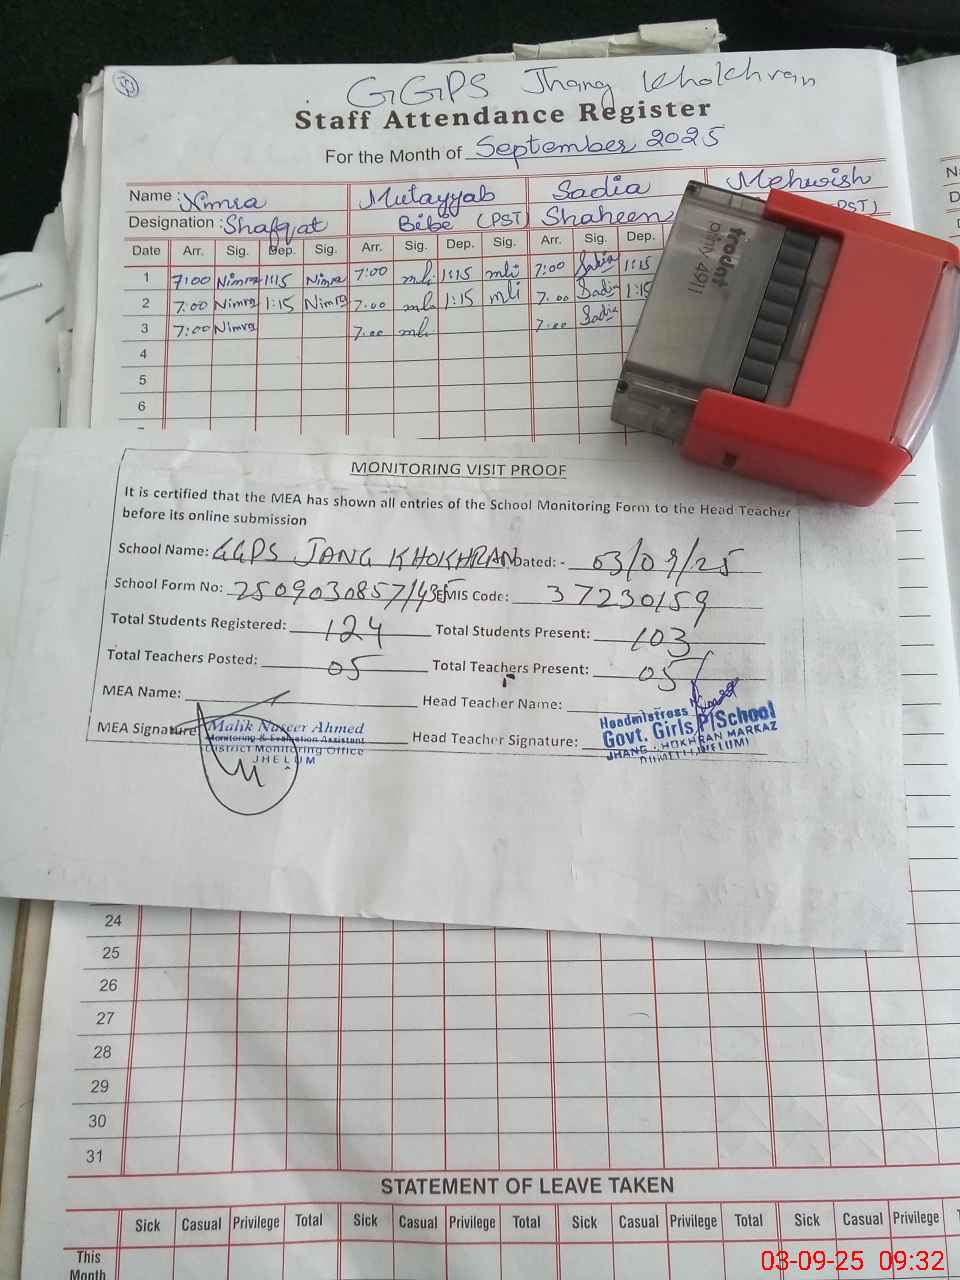 GGPS Jhang Khokhran
Staff Attendance Register
For the Month of September 2025
Name : Nimra Mutayyab Sadia Mehwish
Designation : Shafqat Bibi (PST) Shaheen PST)
Date Arr. Sig. Dep. Sig. Arr. Sig. Dep. Sig. Arr. Sig. Dep.
1 7:00 Nimra 1:15 Nimra 7:00 1:15 7:00 Sadia 1:15
2 7:00 Nimra 1:15 Nimra 7:00 1:15 7:00 Sadia 1:15
3 7:00 Nimra 7:00 7:00 Sadia
4
5
6
trodat
printy 4911
MONITORING VISIT PROOF
It is certified that the MEA has shown all entries of the School Monitoring Form to the Head Teacher
before its online submission
School Name: GGPS JANG KHOKHRAN Dated: - 03/09/25
School Form No: EMIS Code: 37230159
Total Students Registered: 124 Total Students Present: 103
Total Teachers Posted: 05 Total Teachers Present: 05
MEA Name: Head Teacher Name:
MEA Signature: Head Teacher Signature:
Malik Naseer Ahmed
Monitoring & Evaluation Assistant
District Monitoring Office
JHELUM
Headmistress
Govt. Girls P/School
JHANG KHOKHRAN MARKAZ
24
25
26
27
28
29
30
31
STATEMENT OF LEAVE TAKEN
Sick Casual Privilege Total Sick Casual Privilege Total Sick Casual Privilege Total Sick Casual Privilege
This
Month
03-09-25 09:32